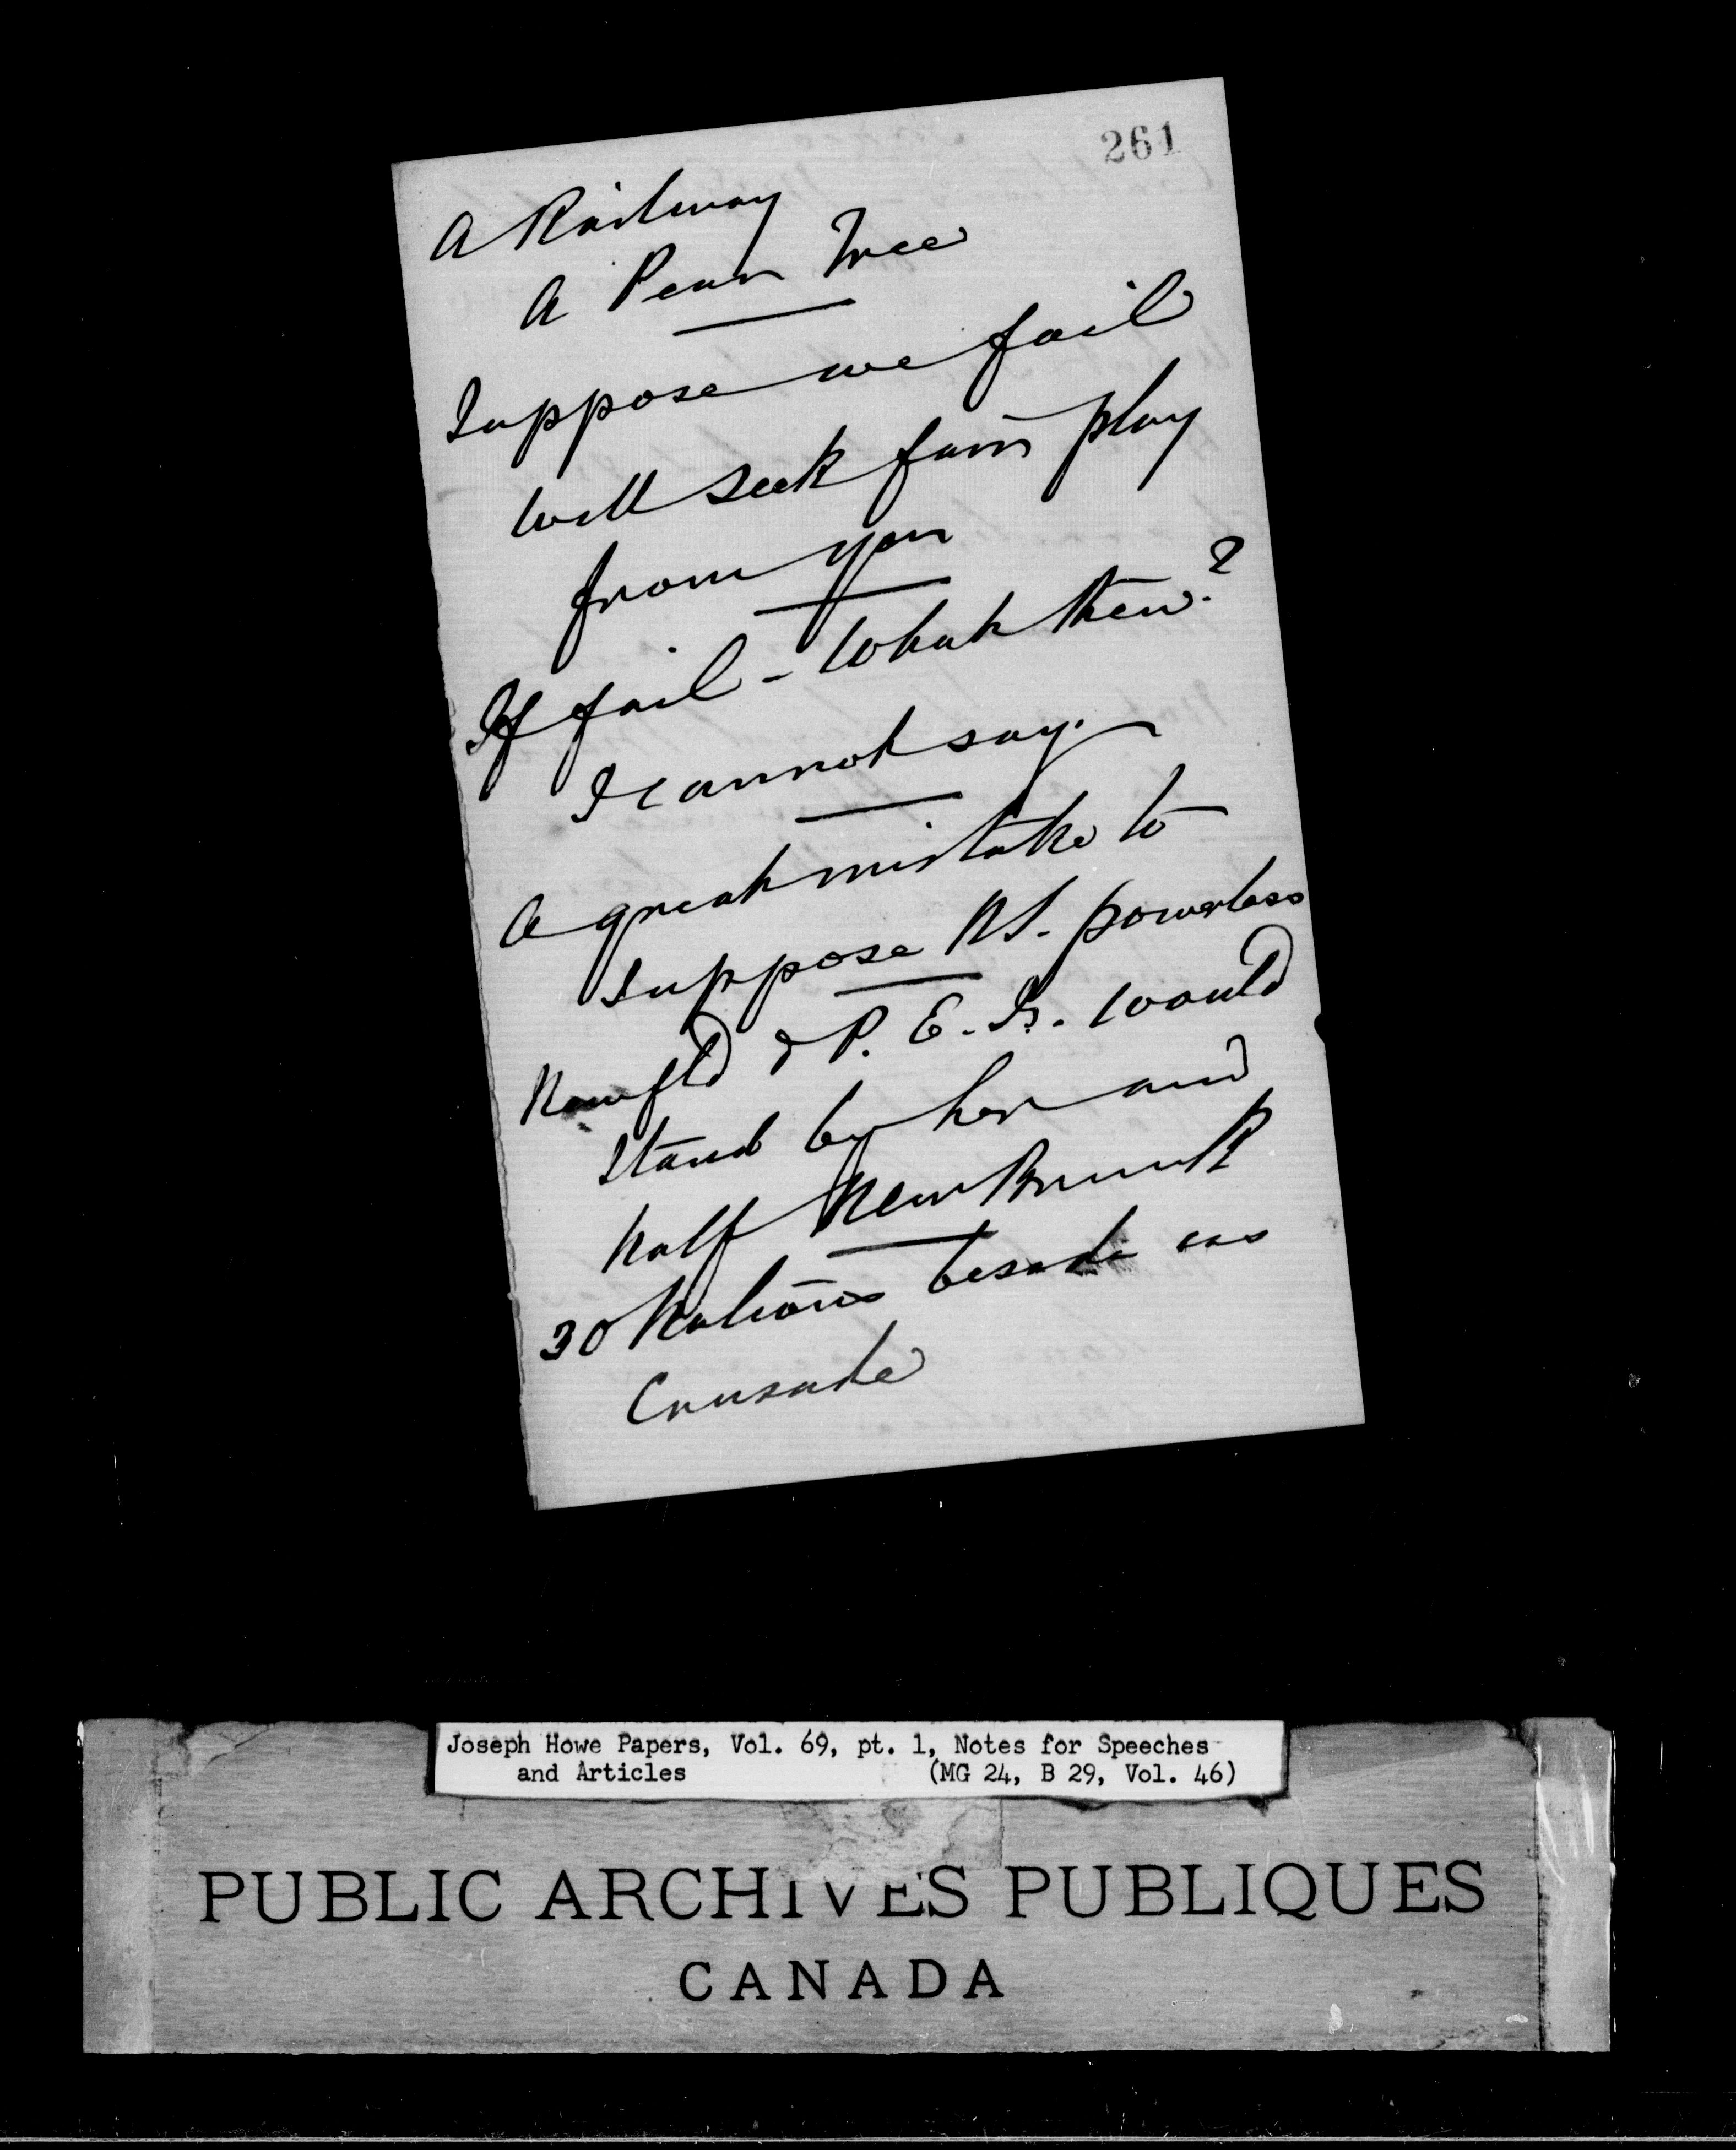 261
A Railway
A Pear Tree
Suppose we fail
Will seek fair play
from you
If fail - What then?
I cannot say.
A great mistake to
suppose NS. powerless
Newfld & P. E. Is. would
stand by her and
half New Brunk
30 Nations beside as
Crusade
Joseph Howe Papers, Vol. 69, pt. 1, Notes for Speeches
and Articles (MG 24, B 29, Vol. 46)
PUBLIC ARCHIVES PUBLIQUES
CANADA